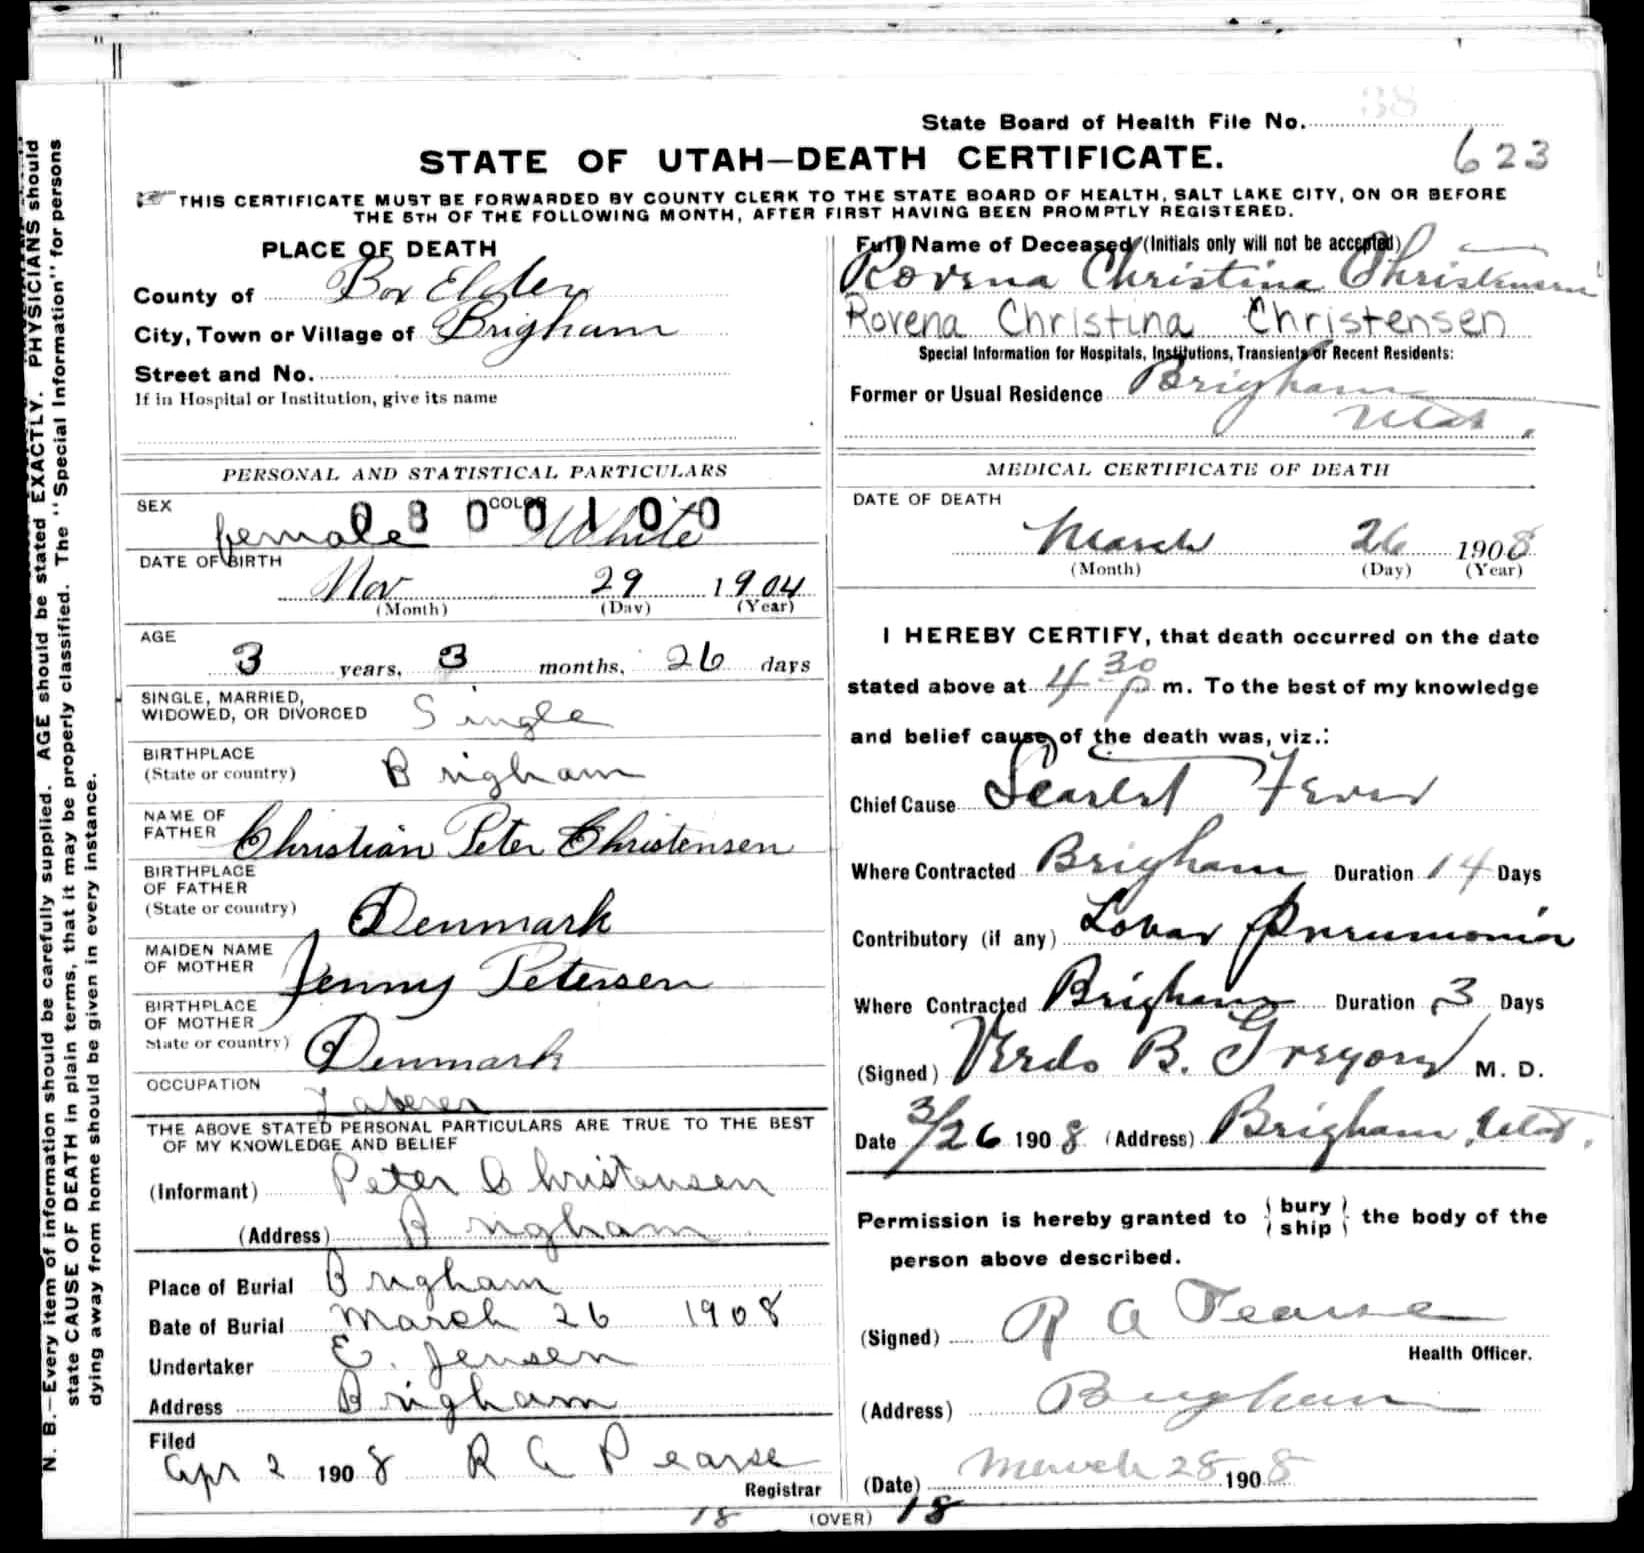 N. B.—Every item of information should be carefully supplied. AGE should be stated EXACTLY. PHYSICIANS should
state CAUSE OF DEATH in plain terms, that it may be properly classified. The "Special Information" for persons
dying away from home should be given in every instance.
38
State Board of Health File No.
623
STATE OF UTAH—DEATH CERTIFICATE.
THIS CERTIFICATE MUST BE FORWARDED BY COUNTY CLERK TO THE STATE BOARD OF HEALTH, SALT LAKE CITY, ON OR BEFORE
THE 5TH OF THE FOLLOWING MONTH, AFTER FIRST HAVING BEEN PROMPTLY REGISTERED.
PLACE OF DEATH
County of Box Elder
City, Town or Village of Brigham
Street and No.
If in Hospital or Institution, give its name
PERSONAL AND STATISTICAL PARTICULARS
SEX female COLOR White
0 3 0 0 1 0 0
DATE OF BIRTH
Nov 29 1904
(Month) (Day) (Year)
AGE
3 years, 3 months, 26 days
SINGLE, MARRIED,
WIDOWED, OR DIVORCED Single
BIRTHPLACE
(State or country) Brigham
NAME OF
FATHER Christian Peter Christensen
BIRTHPLACE
OF FATHER
(State or country) Denmark
MAIDEN NAME
OF MOTHER Jenny Petersen
BIRTHPLACE
OF MOTHER
State or country) Denmark
OCCUPATION
Laberer
THE ABOVE STATED PERSONAL PARTICULARS ARE TRUE TO THE BEST
OF MY KNOWLEDGE AND BELIEF
(Informant) Peter Christensen
(Address) Brigham
Place of Burial Brigham
Date of Burial March 26 1908
Undertaker E. Jensen
Address Brigham
Filed
Apr 2 1908 R A Pearse
Registrar
Full Name of Deceased (Initials only will not be accepted)
Rovena Christina Christensen
Rovena Christina Christensen
Special Information for Hospitals, Institutions, Transients or Recent Residents:
Former or Usual Residence Brigham
Utah.
MEDICAL CERTIFICATE OF DEATH
DATE OF DEATH
March 26 1908
(Month) (Day) (Year)
I HEREBY CERTIFY, that death occurred on the date
stated above at 4 30 p m. To the best of my knowledge
and belief cause of the death was, viz.:
Chief Cause Scarlet Fever
Where Contracted Brigham Duration 14 Days
Contributory (if any) Lobar Pneumonia
Where Contracted Brigham Duration 3 Days
(Signed) Verdo B. Gregory M. D.
Date 3/26 1908 (Address) Brigham, Utah.
Permission is hereby granted to (bury ship) the body of the
person above described.
(Signed) R A Pearse
Health Officer.
(Address) Brigham
(Date) March 28 1908
18 (OVER) 18